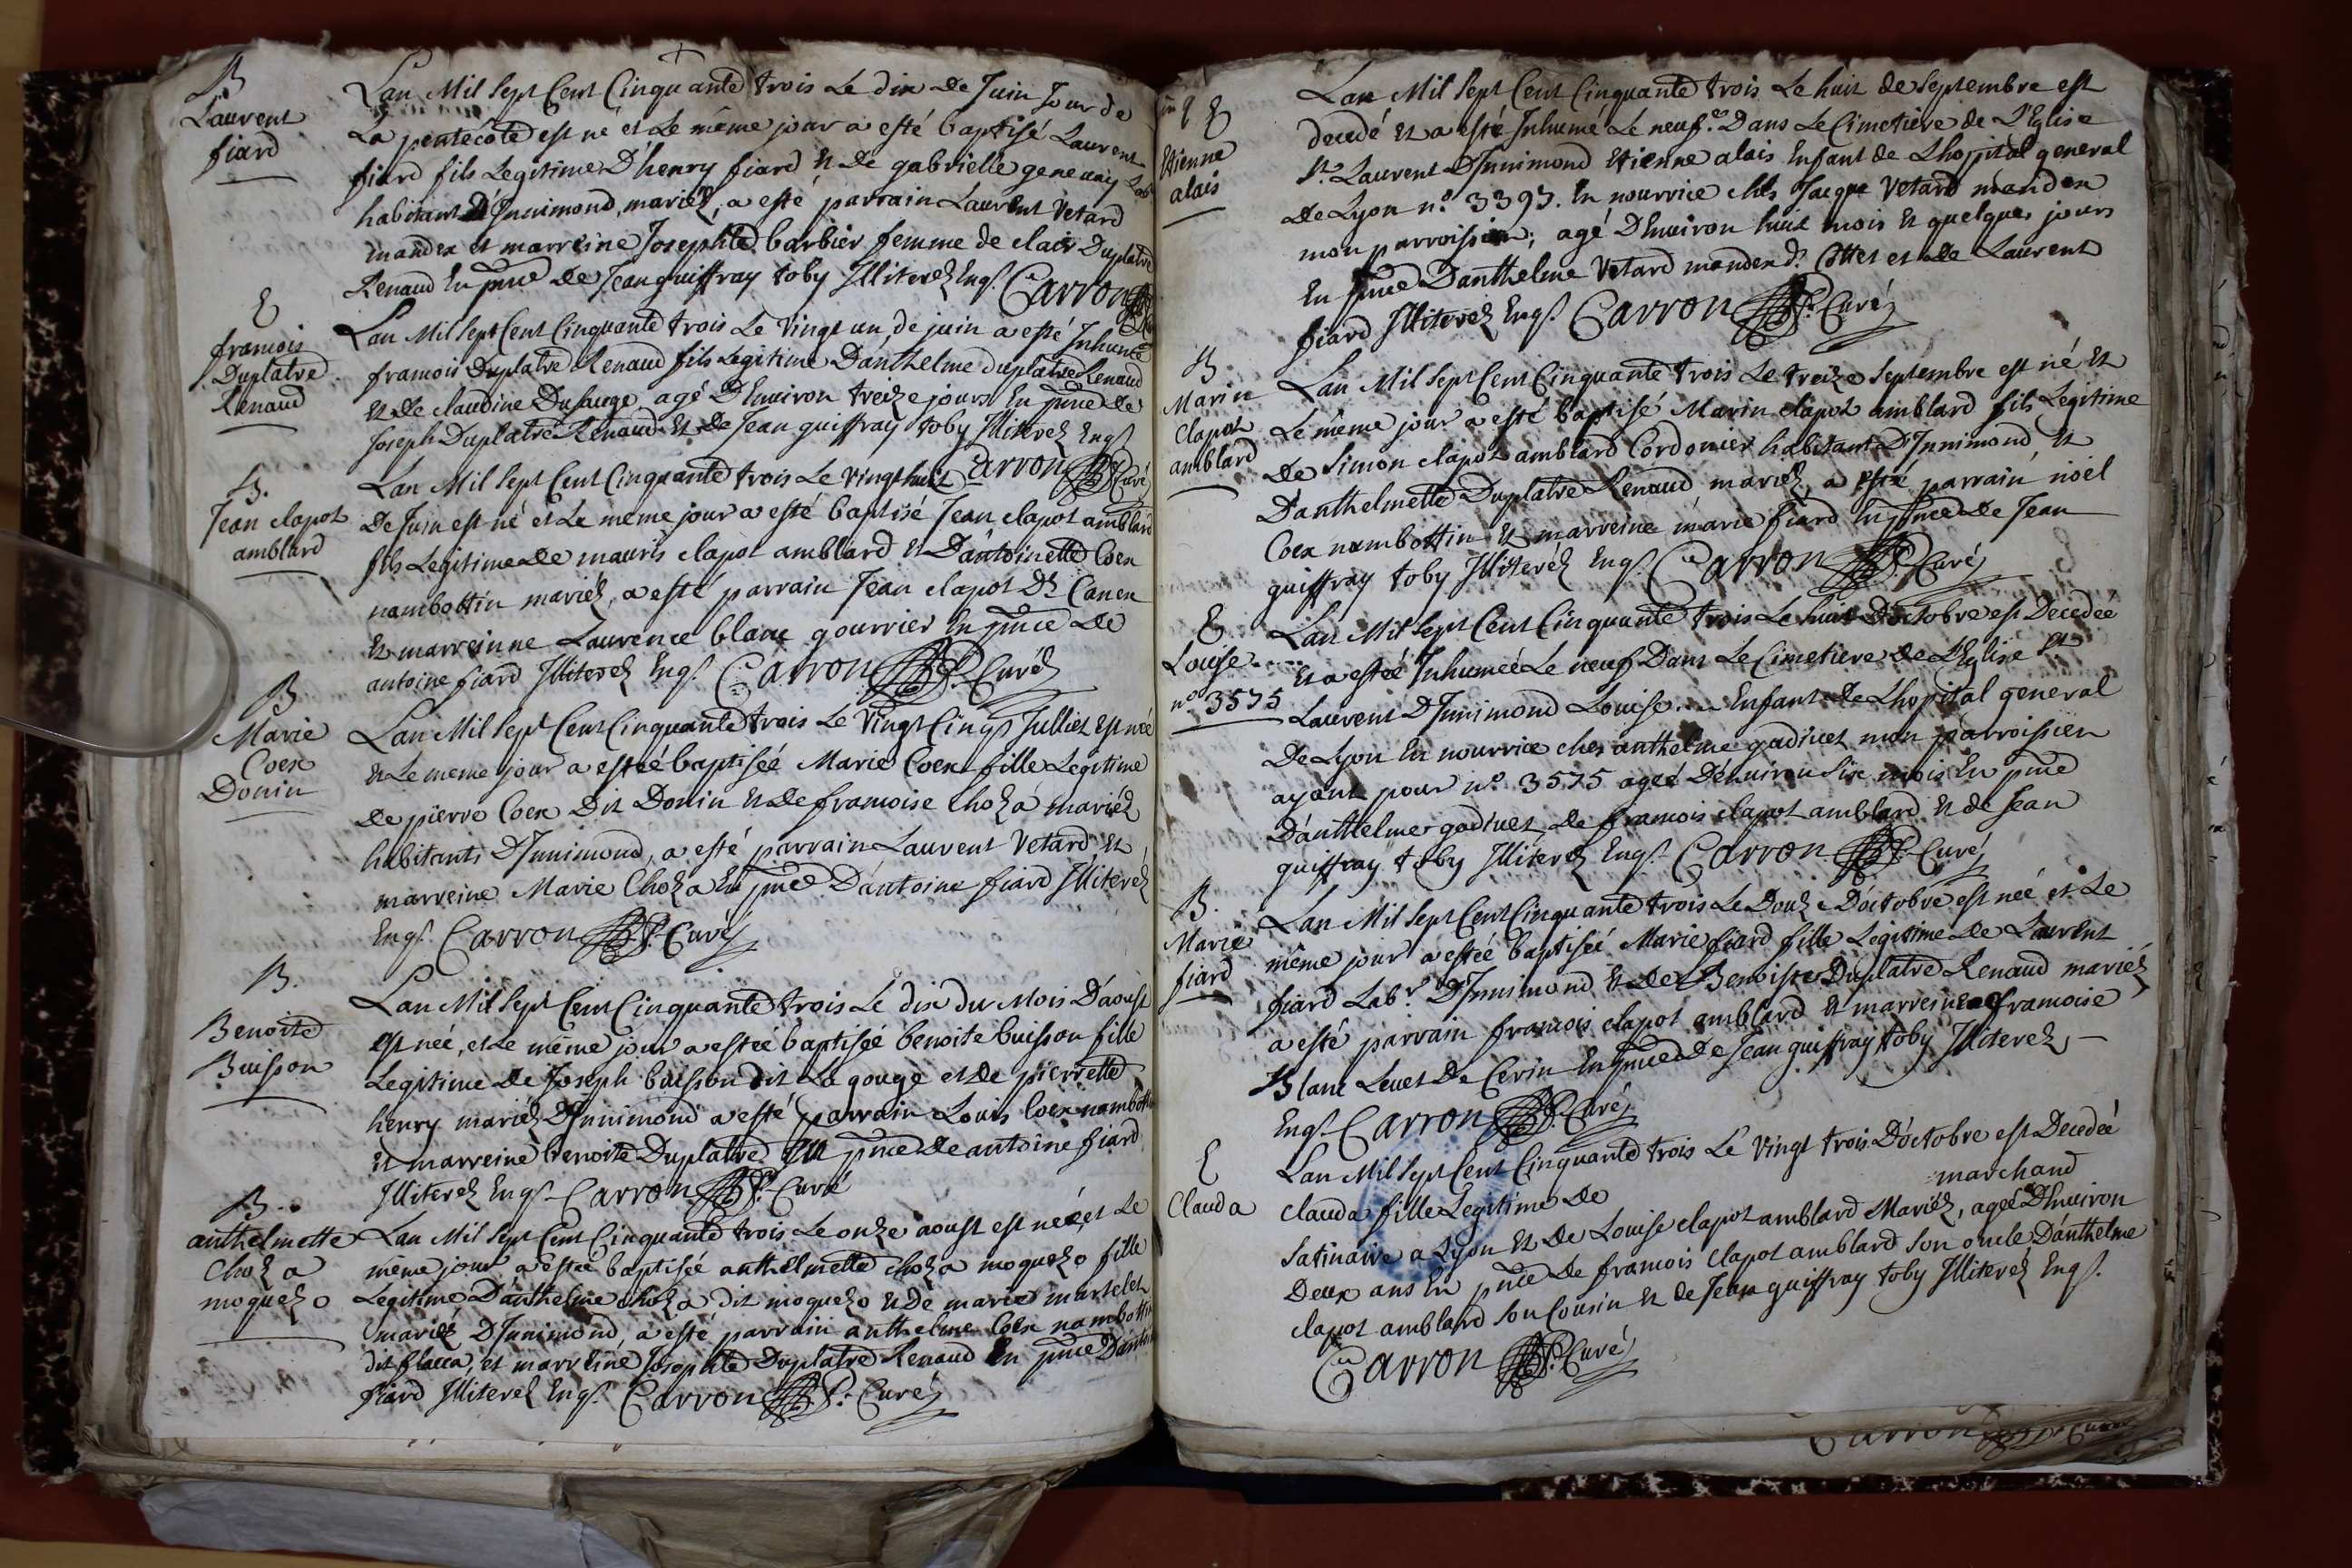 B
Laurent
fiard
Lan Mil Sept Cent Cinquante trois Le dix de Juin Jour de
La pentecote est né et Le même jour a esté baptisé Laurent
fiard fils Legitime D'henry fiard et de gabrielle genevay Labr
habitant D'Innimond, mariéz, a esté parrain Laurent Vetard
mandex et marreine Josephte barbier femme de clair Duplatre
Renaud En pnce de Jean guiffray toby Illiterez Enqs. Carron
E
francois
Duplatre
Renaud
Lan Mil Sept Cent Cinquante trois Le Vingt un de juin a esté Inhumé
francois Duplatre Renaud fils Legitime D'anthelme duplatre Renaud
et de claudine Dusauge agé D'Environ treize jours En pnce de
Joseph Duplatre Renaud et de Jean guiffray toby Illiterez Enqs
Carron Curé
B.
Jean clapot
amblard
Lan Mil Sept Cent Cinquante trois Le Vingt huit
De Juin est né et Le même jour a esté baptisé Jean clapot amblard
fils Legitime de mauris clapot amblard et D'antoinette Coex
nambottin mariéz, a esté parrain Jean clapot Dt Canen
et marreinne Laurence blanc gourrier En pnce de
antoine fiard Illiterez Enqs. Carron P. Curé
B
Marie
Coex
Donin
Lan Mil Sept Cent Cinquante trois Le Vingt Cinq Julliet est née
et Le meme jour a esteé baptiséé Marie Coex fille Legitime
de pierre Coex Dit Donin et de francoise Choza mariéz
habitants D'Innimond, a esté parrain Laurent Vetard et
marreine Marie Choza En pnce D'antoine fiard Illiteréz
Enqs. Carron P. Curé
B.
Benoite
Buisson
Lan Mil Sept Cent Cinquante trois Le dix du Mois D'aoust
est née, et Le même jour a esteé baptiséé benoite buisson fille
Legitime de Joseph buisson dit La gouge et de pierrette
henry mariéz D'Innimond a esté parrain Louis Coex nambottin
et marreine benoite Duplatre En pnce de antoine fiard
Illiterez Enqs. Carron P. Curé
B.
anthelmette
Choza
moquezo
Lan Mil Sept Cent Cinquante trois Le onze aoust est née et Le
même jour a esteé baptiséé anthelmette choza moquezo fille
Legitime D'anthelme choza dit moquezo et de marie martelet
mariéz D'Innimond, a esté parrain anthelme Coex nambottin
dit flacca, et marreine Josephte Duplatre Renaud En pnce D'antoine
fiard Illiterez Enqs. Carron P. Curé
E
Etienne
alais
Lan Mil Sept Cent Cinquante trois Le huit de Septembre est
decedé et a esté Inhumé Le neuf.e Dans Le Cimetiere de L'Eglise
St. Laurent D'Innimond Etienne alais Enfant de Lhopital general
de Lyon n.o 3393. En nourrice chés Jacque Vetard mandex
mon parroissien; agé D'Environ huit mois et quelques jours
En pnce D'anthelme Vetard mandex dt. Cottet et de Laurent
fiard Illiterez Enqs. Carron P. Curé
B.
Marin
Clapot
amblard
Lan Mil Sept Cent Cinquante trois Le treize Septembre est né et
Le même jour a esté baptisé Marin clapot amblard fils Legitime
de Simon clapot amblard Cordonier habitant D'Innimond et
D'anthelmette Duplatre Renaud mariéz, a esté parrain noël
Coex nambottin et marreine marie fiard En pnce de Jean
guiffray toby Illiteréz Enqs. Carron P. Curé
E
Louise....
n.o 3575
Lan Mil Sept Cent Cinquante trois Le huit D'octobre est Decedeé
et a esteé Inhumeé Le neuf Dans Le Cimetiere de L'Eglise St
Laurent D'Innimond Louise.... Enfant de Lhopital general
De Lyon En nourrice chés anthelme gadivet mon parroissien
ayant pour n.o 3575 ageé D'Environ Six mois En pnce
D'anthelme gadivet, de francois clapot amblard et de Jean
guiffray toby Illiterez Enqs. Carron P. Curé
B.
Marie
fiard
Lan Mil Sept Cent Cinquante trois Le Douze D'octobre est neé et Le
même jour a esteé baptiseé Marie fiard fille Legitime de Laurent
fiard Labr. D'Innimond et de Benoiste Duplatre Renaud mariéz
a esté parrain francois clapot amblard et marreine francoise
Blanc Levet De Cerin En pnce de Jean guiffray toby Illiterez
Enqs. Carron P. Curé
E
Clauda
Lan Mil Sept Cent Cinquante trois Le Vingt trois D'octobre est Decedeé
clauda fille Legitime de marchand
Satinaire a Lyon et De Louise clapot amblard Mariéz, ageé D'Environ
Deux ans En pnce de francois Clapot amblard Son oncle D'anthelme
clapot amblard Son Cousin et de Jean guiffray toby Illiteréz Enqs.
Carron P. Curé
Carron Curé